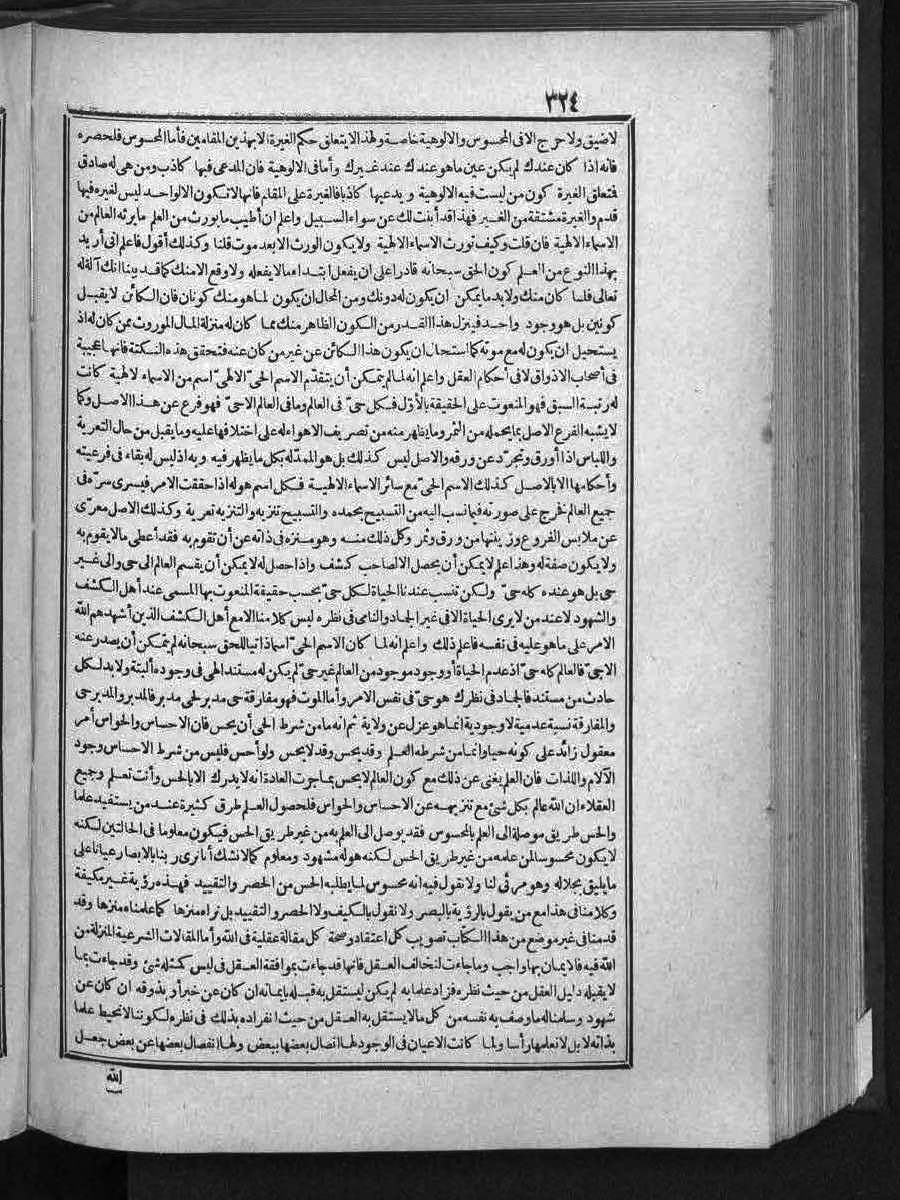 ٣٢٤
لا ضيق ولا حرج الا فى المحسوس والالوهية خاصة ولهذا لا يتعلق حكم الغيرة الا بهذين المقامين فأما المحسوس فلحصره
فانه اذا كان عندك لم يكن عين ما هو عندك عند غيرك وأما فى الالوهية فان المدعى فيها كاذب ومن هى له صادق
فتعلق الغيرة كون من ليست فيه الالوهية ويدعيها كاذبا فالغيرة على المقام فانها لا تكون الا لواحد ليس لغيره فيها
قدم والغيرة مشتقة من الغير فهذا قد أبنت لك عن سواء السبيل واعلم ان أطيب ما يورث من العلم ما يرثه العالم من
الاسماء الالهية فان قلت وكيف تورث الاسماء الالهية ولا يكون الورث الا بعد موت قلنا وكذلك أقول فاعلم انى أريد
بهذا النوع من العلم كون الحق سبحانه قادرا على ان يفعل ابتداء ما لا يفعله ولا وقع الا منك كما قد بينا انك آلة له
تعالى فلما كان منك ولا بد ما يمكن ان يكون له دونك ومن المحال ان يكون لما هو منك كونان فان الكائن لا يقبل
كونين بل هو وجود واحد فينزل هذا القدر من الكون الظاهر منك مما كان له منزلة المال الموروث ممن كان له اذ
يستحيل ان يكون له مع موته كما استحال ان يكون هذا الكائن عن غير من كان عنه فتحقق هذه النكتة فانها عجيبة
فى أصحاب الاذواق لا فى أحكام العقل واعلم انه لما لم يتمكن أن يتقدم الاسم الحىّ الالهىّ اسم من الاسماء لالهية كانت
له رتبة السبق فهو المنعوت على الحقيقة بالأوّل فكل حىّ فى العالم وما فى العالم الاحىّ فهو فرع عن هذا الاصل وكما
لا يشبه الفرع الاصل بما يحمله من الثمر وما يظهر منه من تصريف الاهواء له على اختلافها عليه وما يقبل من حال التعرية
واللباس اذا أورق وتجرّد عن ورقه والاصل ليس كذلك بل هو الممدّ له بكل ما يظهر فيه وبه اذ ليس له بقاء فى فرعيته
وأحكامها الا بالاصل كذلك الاسم الحىّ مع سائر الاسماء الالهية فكل اسم هو له اذا حققت الامر فيسرى سرّه فى
جميع العالم فخرج على صورته فيما نسب اليه من التسبيح بحمده والتسبيح تنزيه والتنزيه تعرية وكذلك الاصل معرّى
عن ملابس الفروع وزينتها من ورق وثمر وكل ذلك منه وهو منزه فى ذاته عن أن تقوم به فقد أعطى ما لا يقوم به
ولا يكون صفة له وهذا علم لا يمكن أن يحصل الا لصاحب كشف واذا حصل له لا يمكن أن يقسم العالم الى حى والى غير
حى بل هو عنده كله حىّ ولكن تنسب عندنا الحياة لكل حىّ بحسب حقيقة المنعوت بها المسمى عند أهل الكشف
والشهود لا عند من لا يرى الحياة الا فى غير الجماد والنامى فى نظره ليس كلامنا الا مع أهل الكشف الذين أشهدهم الله
الامر على ما هو عليه فى نفسه فاعلم ذلك واعلم انه لما كان الاسم الحىّ اسما ذاتيا للحق سبحانه لم يتمكن أن يصدر عنه
الاحىّ فالعالم كله حىّ اذ عدم الحياة أو وجود موجود من العالم غير حىّ لم يكن له مستند الهى فى وجوده ألبتة ولا بد لكل
حادث من مستند فالجماد فى نظرك هو حىّ فى نفس الامر وأما الموت فهو مفارقة حى مدبر لحى مدبر فالمدبر والمدبر حى
والمفارقة نسبة عدمية لا وجودية انما هو عزل عن ولاية ثم انه ما من شرط الحى أن يحس فان الاحساس والحواس أمر
معقول زائد على كونه حيا وانما من شرطه العلم وقد يحس وقد لا يحس ولو أحس فليس من شرط الاحساس وجود
الآلام واللذات فان العلم يغنى عن ذلك مع كون العالم لا يحس بما جرت العادة انه لا يدرك الا بالحس وأنت تعلم وجميع
العقلاء ان الله عالم بكل شئ مع تنزيهه عن الاحساس والحواس فلحصول العلم طرق كثيرة عند من يستفيد علما
والحس طريق موصلة الى العلم بالمحسوس فقد يوصل الى العلم به من غير طريق الحس فيكون معلوما فى الحالتين لكنه
لا يكون محسوسا لمن علمه من غير طريق الحس لكنه هو له مشهود ومعلوم كما لا نشك أنا نرى ربنا بالابصار عيانا على
ما يليق بجلاله وهو مرئى لنا ولا نقول فيه انه محسوس لما يطلبه الحس من الحصر والتقييد فهذه رؤية غير مكيفة
وكلامنا فى هذا مع من يقول بالرؤية بالبصر ولا نقول بالكيف ولا الحصر والتقييد بل نراه منزها كما علمناه منزها وقد
قدمنا فى غير موضع من هذا الكتاب تصويب كل اعتقاد وصحة كل مقالة عقلية فى الله وأما المقالات الشرعية المنزلة من
الله فيه فالايمان بها واجب وما جاءت لتخالف العقل فانها قد جاءت بموافقة العقل فى ليس كمثله شئ وقد جاءت بما
لا يقبله دليل العقل من حيث نظره فزاد علما به لم يكن ليستقل به قبله بايمانه ان كان عن خبر أو بذوقه ان كان عن
شهود وسلمنا له ما وصف به نفسه من كل ما لا يستقل به العقل من حيث انفراده بذلك فى نظره لكوننا لا نحيط علما
بذاته لا بل لا نعلمها رأسا ولما كانت الاعيان فى الوجود لها اتصال بعضها ببعض ولها انفصال بعضها عن بعض جعل
الله